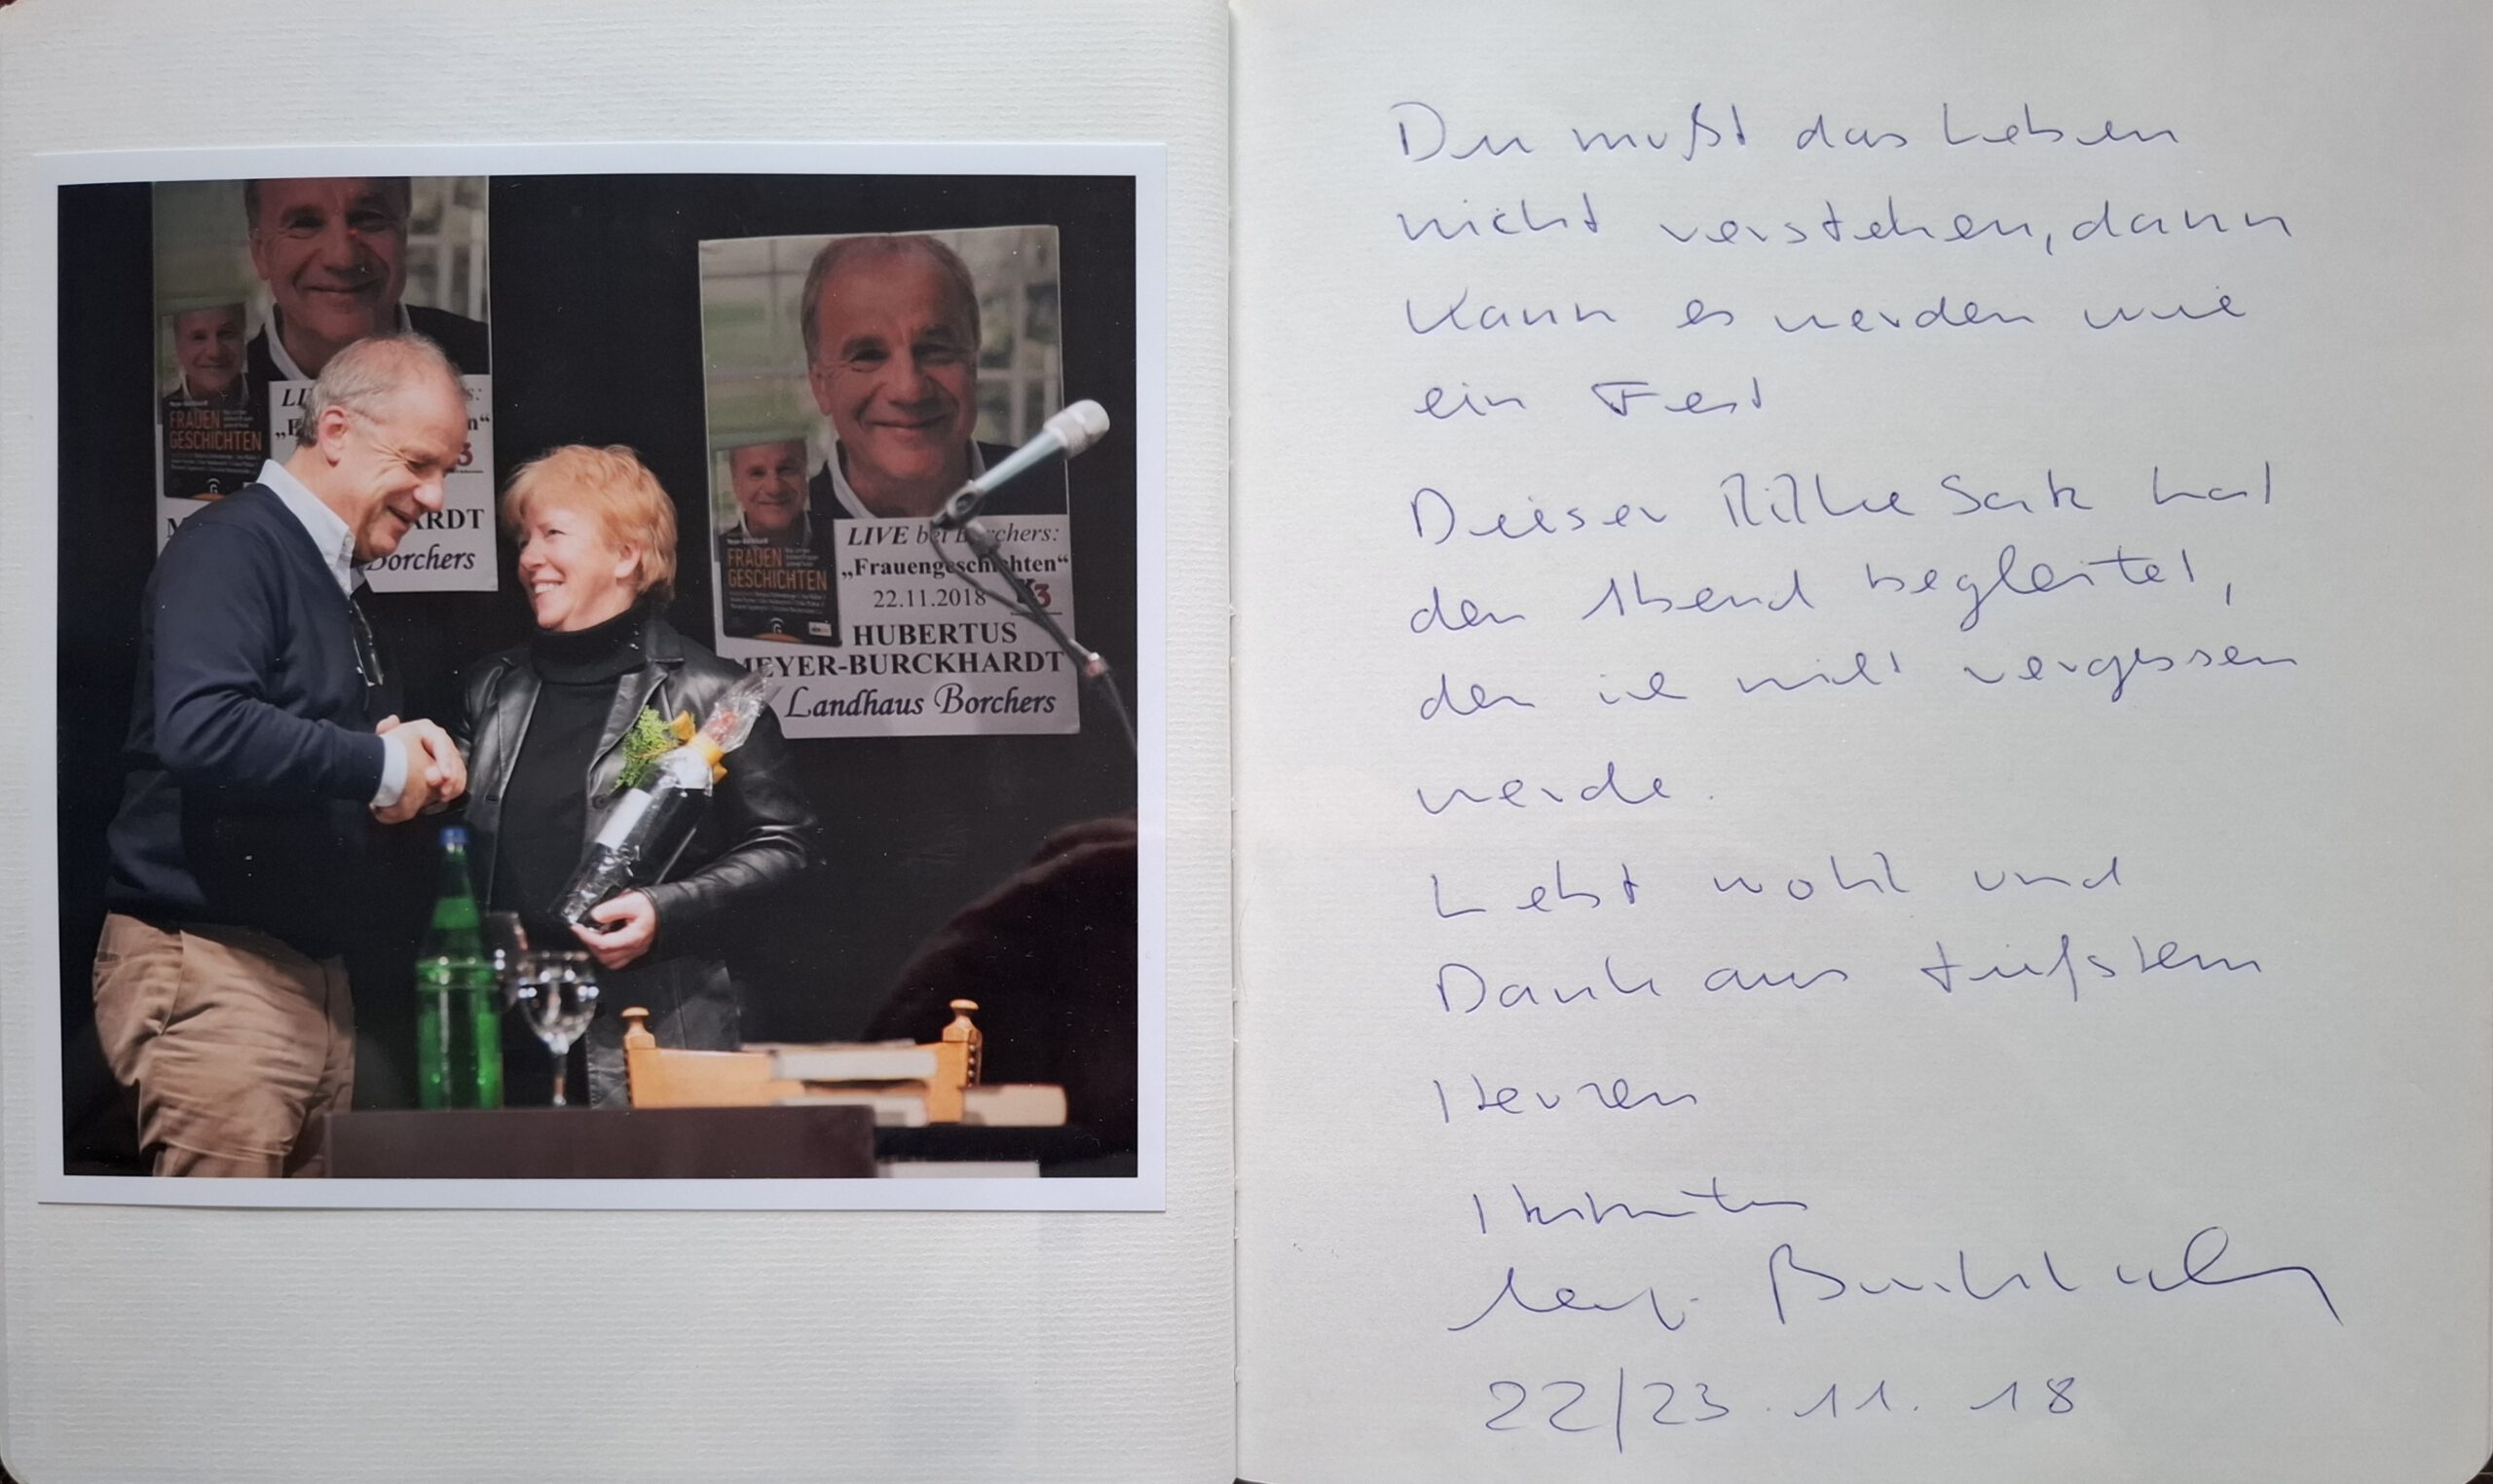 FRAUEN
GESCHICHTEN
ARDT
Borchers
FRAUEN
GESCHICHTEN
LIVE bei Borchers:
„Frauengeschichten“
22.11.2018
HUBERTUS
MEYER-BURCKHARDT
Landhaus Borchers
Du mußt das Leben
nicht verstehen, dann
kann es werden wie
ein Fest
Dieser Rilke Satz hat
den Abend begleitet,
den ich nicht vergessen
werde.
Lebt wohl und
Dank aus tiefstem
Herzen
Hubertus
Meyer-Burckhardt
22/23.11.18